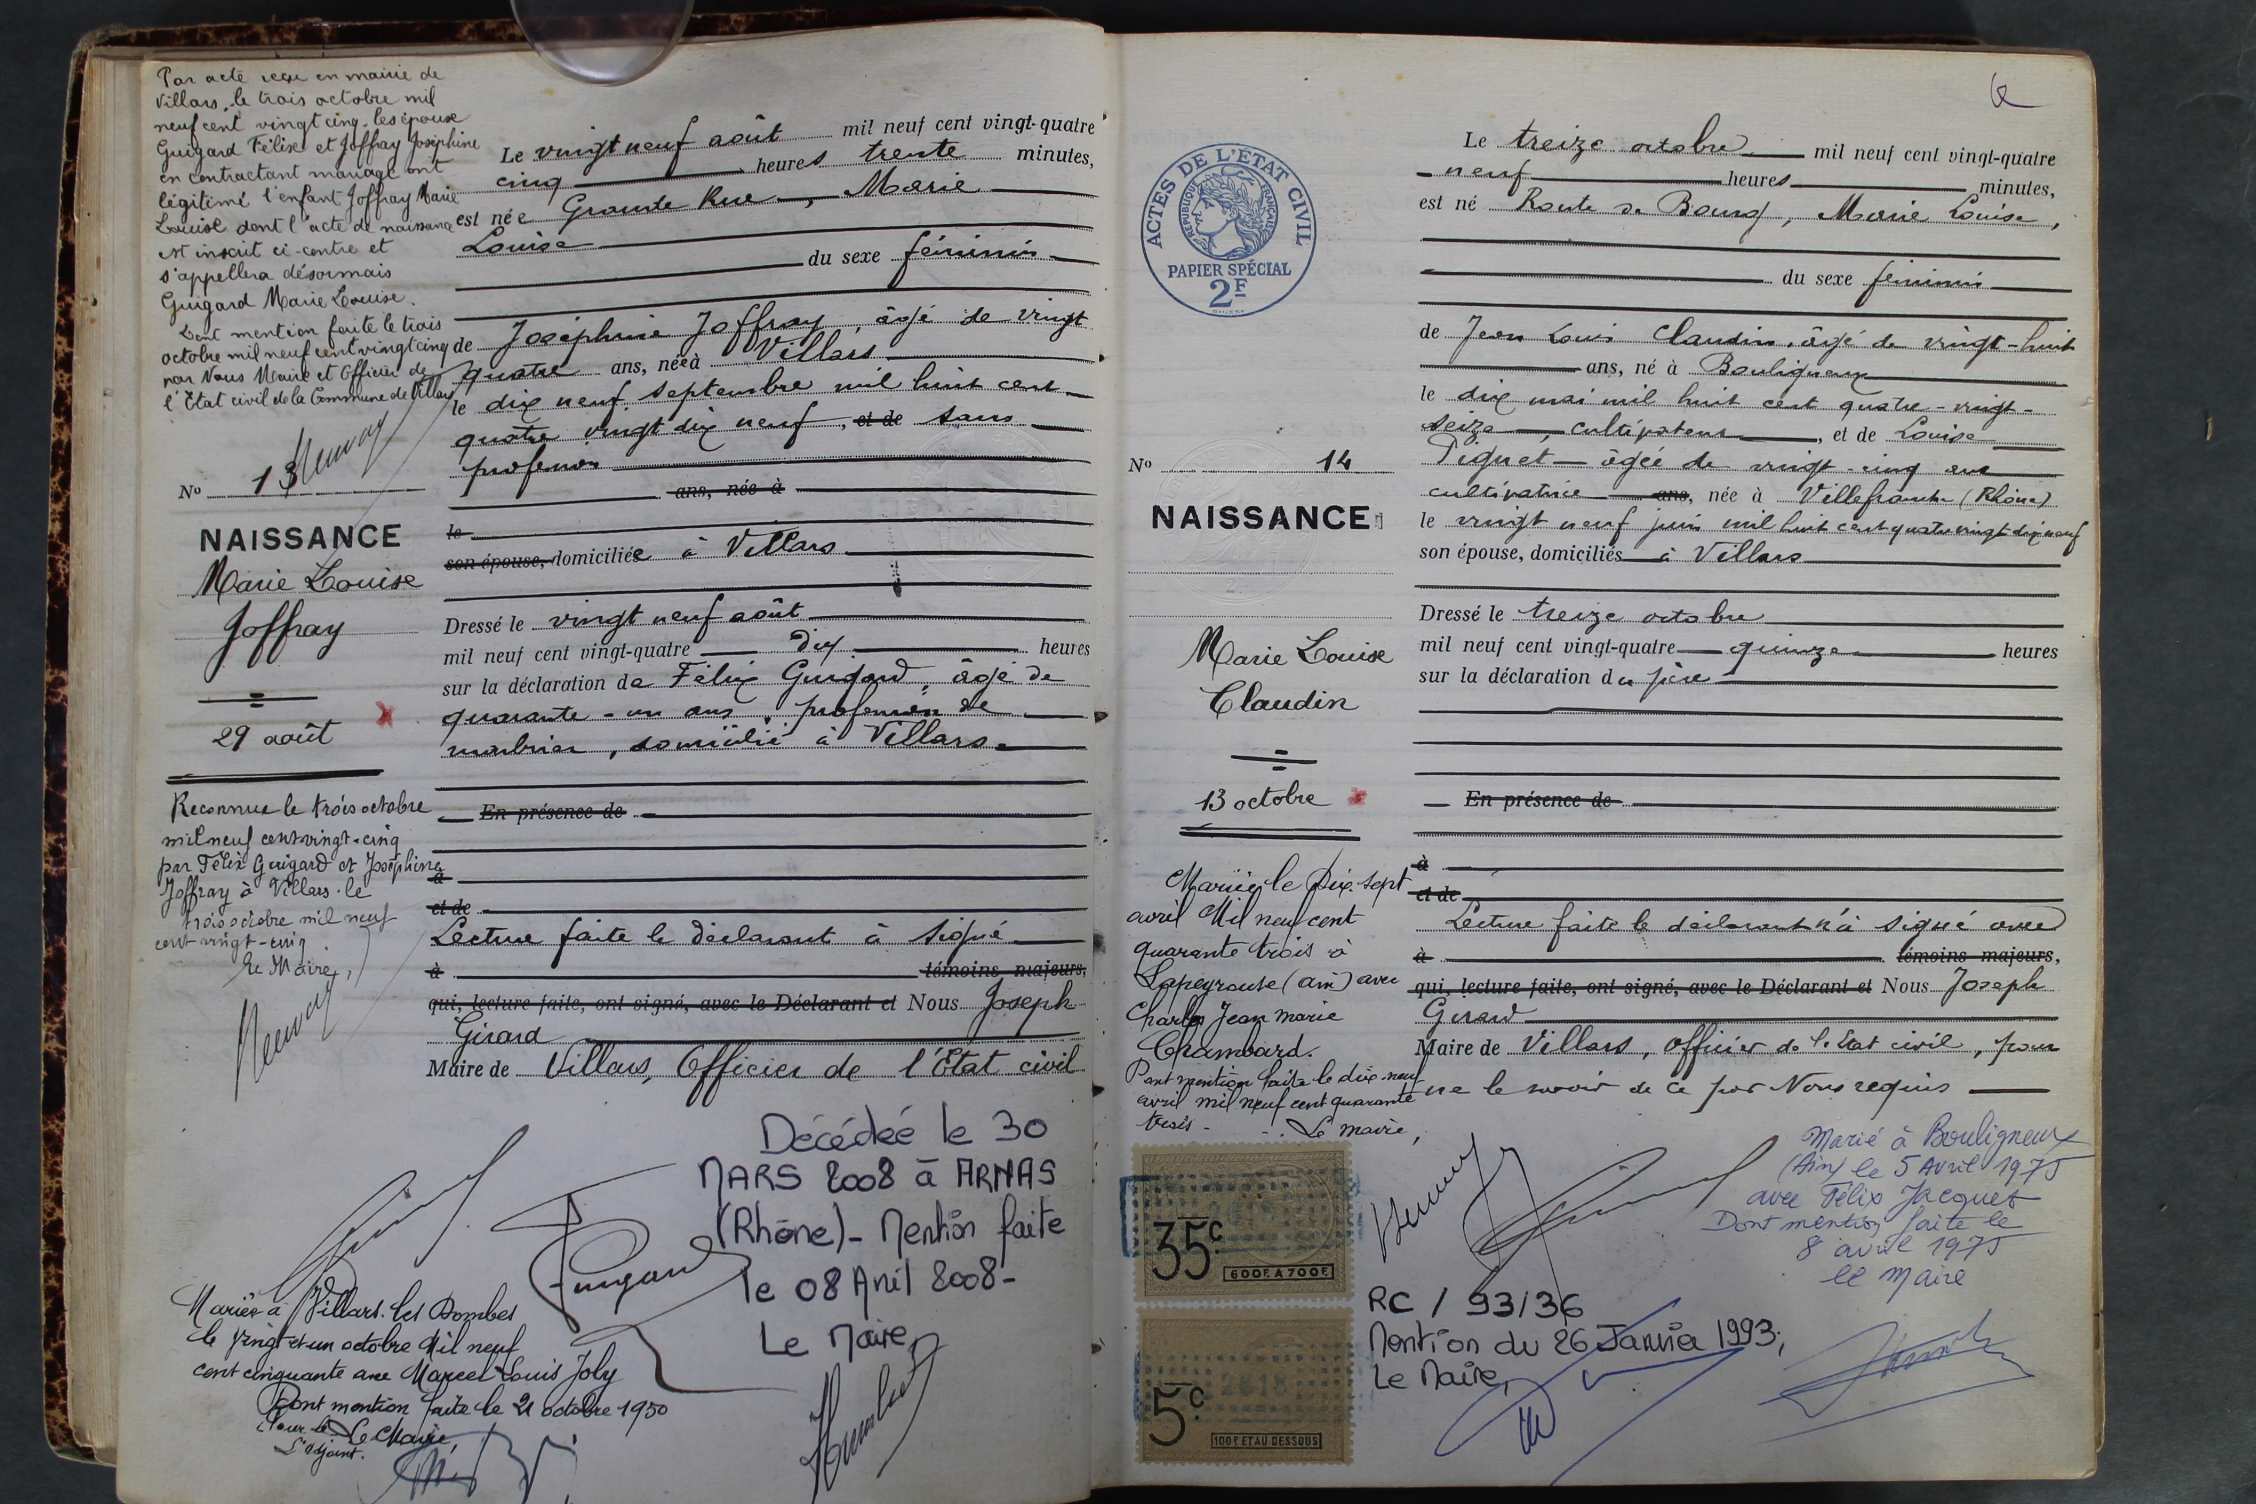 Par acte reçu en mairie de
Villars, le trois octobre mil
neuf cent vingt cinq, les époux
Guigard Félix et Joffray Joséphine
en contractant mariage ont
légitimé l'enfant Joffray Marie
Louise dont l'acte de naissance
est inscrit ci-contre et
s'appellera désormais
Guigard Marie Louise.
Dont mention faite le trois
octobre mil neuf cent vingt cinq
par Nous Maire et Officier de
l'Etat civil de la Commune de Villars
No 13
NAISSANCE
Marie Louise
Joffray
29 août
Reconnue le trois octobre
mil neuf cent vingt-cinq
par Félix Guigard et Joséphine
Joffray à Villars. le
trois octobre mil neuf
cent vingt-cinq
Le Maire,
Le vingt neuf août mil neuf cent vingt-quatre
cinq heures trente minutes,
est née Grande Rue, Marie
Louise
du sexe féminin
de Joséphine Joffray, âgé de vingt
quatre ans, née à Villars
le dix neuf septembre mil huit cent
quatre vingt dix neuf, et de sans
profession
ans, née à
le
son épouse, domiciliée à Villars
Dressé le vingt neuf août
mil neuf cent vingt-quatre dix heures
sur la déclaration de Félix Guigard, âgé de
quarante-un ans, profession de
marbrier, domicilié à Villars
En présence de
à
et de
Lecture faite le déclarant à signé
à témoins majeurs,
qui, lecture faite, ont signé, avec le Déclarant et Nous Joseph
Girard
Maire de Villars, Officier de l'État civil
Décédée le 30
MARS 2008 à ARNAS
(Rhône)_ Mention faite
le 08 Avril 2008-
Le Maire,
Mariée à Villars-les Dombes
le vingt et un octobre Mil neuf
cent cinquante avec Marcel Louis Joly
Dont mention faite le 21 octobre 1950
Pour Le Maire,
L'adjoint.
ACTES DE L'ETAT CIVIL
REPUBLIQUE FRANÇAISE
PAPIER SPÉCIAL
2F
No 14
NAISSANCE
Marie Louise
Claudin
13 octobre
Mariée le Dix-sept
avril Mil neuf cent
quarante trois à
Lapeyrouse (Ain) avec
Charles Jean Marie
Chambard.
Dont mention faite le dix-neuf
avril mil neuf cent quarante
trois -
Le maire,
35c.
600F. A 700F.
5c.
100F. ET AU DESSOUS
Le treize octobre mil neuf cent vingt-quatre
neuf heures minutes,
est né Route de Bourg, Marie Louise,
du sexe féminin
de Jean Louis Claudin, âgé de vingt-huit
ans, né à Bouligneux
le dix mai mil huit cent quatre-vingt-
seize, cultivateur, et de Louise
Piguet âgée de vingt-cinq ans
cultivatrice ans, née à Villefranche (Rhône)
le vingt neuf juin mil huit cent quatre vingt dix neuf
son épouse, domiciliés à Villars
Dressé le treize octobre
mil neuf cent vingt-quatre quinze heures
sur la déclaration du père
En présence de
à
et de
Lecture faite le déclarant n'à signé avec
à témoins majeurs,
qui, lecture faite, ont signé, avec le Déclarant et Nous Joseph
Girard
Maire de Villars, officier de l'Etat civil, pour
ne le savoir de ce par Nous requis
Marié à Bouligneux
(Ain) le 5 Avril 1975
avec Félix Jacquet
Dont mention faite le
8 avril 1975
le Maire
RC / 93/36
Mention du 26 Janvier 1993;
Le Maire,